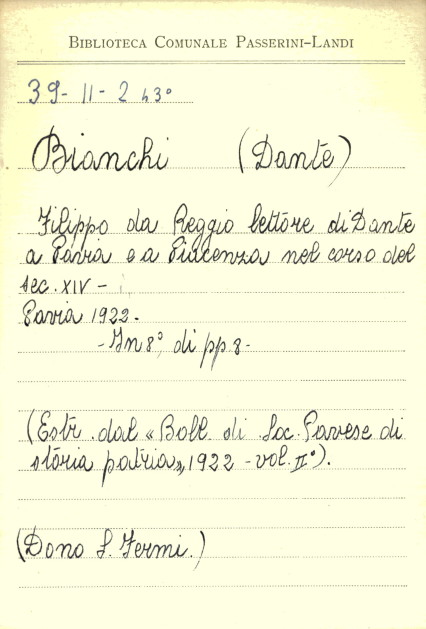 BIBLIOTECA COMUNALE PASSERINI-LANDI
39-11-2 43°
Bianchi (Dante)
Filippo da Reggio lettore di Dante
a Pavia e a Piacenza nel corso del
sec. XIV -
Pavia 1922.
- In 8°, di pp. 8 -
(Estr. dal « Boll. di Soc. Pavese di
storia patria », 1922 - vol. II°).
(Dono S. Fermi.)